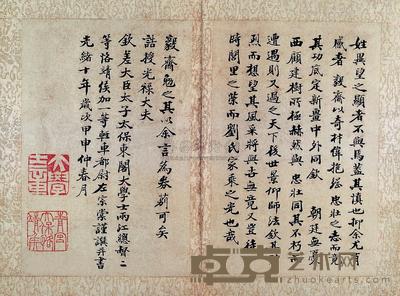 姓異望之顯者不與焉蓋其慎也抑余尤有
感者毅齋以奇材偉抱繼忠壯之志而竟
其功底定新畺中外同欽　朝廷無
西顧建樹所極赫然與忠壯同其不朽
遭遇則又過之天下後世景仰師法欽其
烈而想望其風采將與吾無覺又豈徒
時閭里之榮而劉氏家乘之光也哉
毅齋勉之其以余言為券劑可矣
誥授光祿大夫
欽差大臣太子太保東閣大學士兩江總督二
等恪靖侯加一等輕車都尉左宗棠謹撰并書
光緒十年歲次甲申仲春月
大學士章
青宮太保